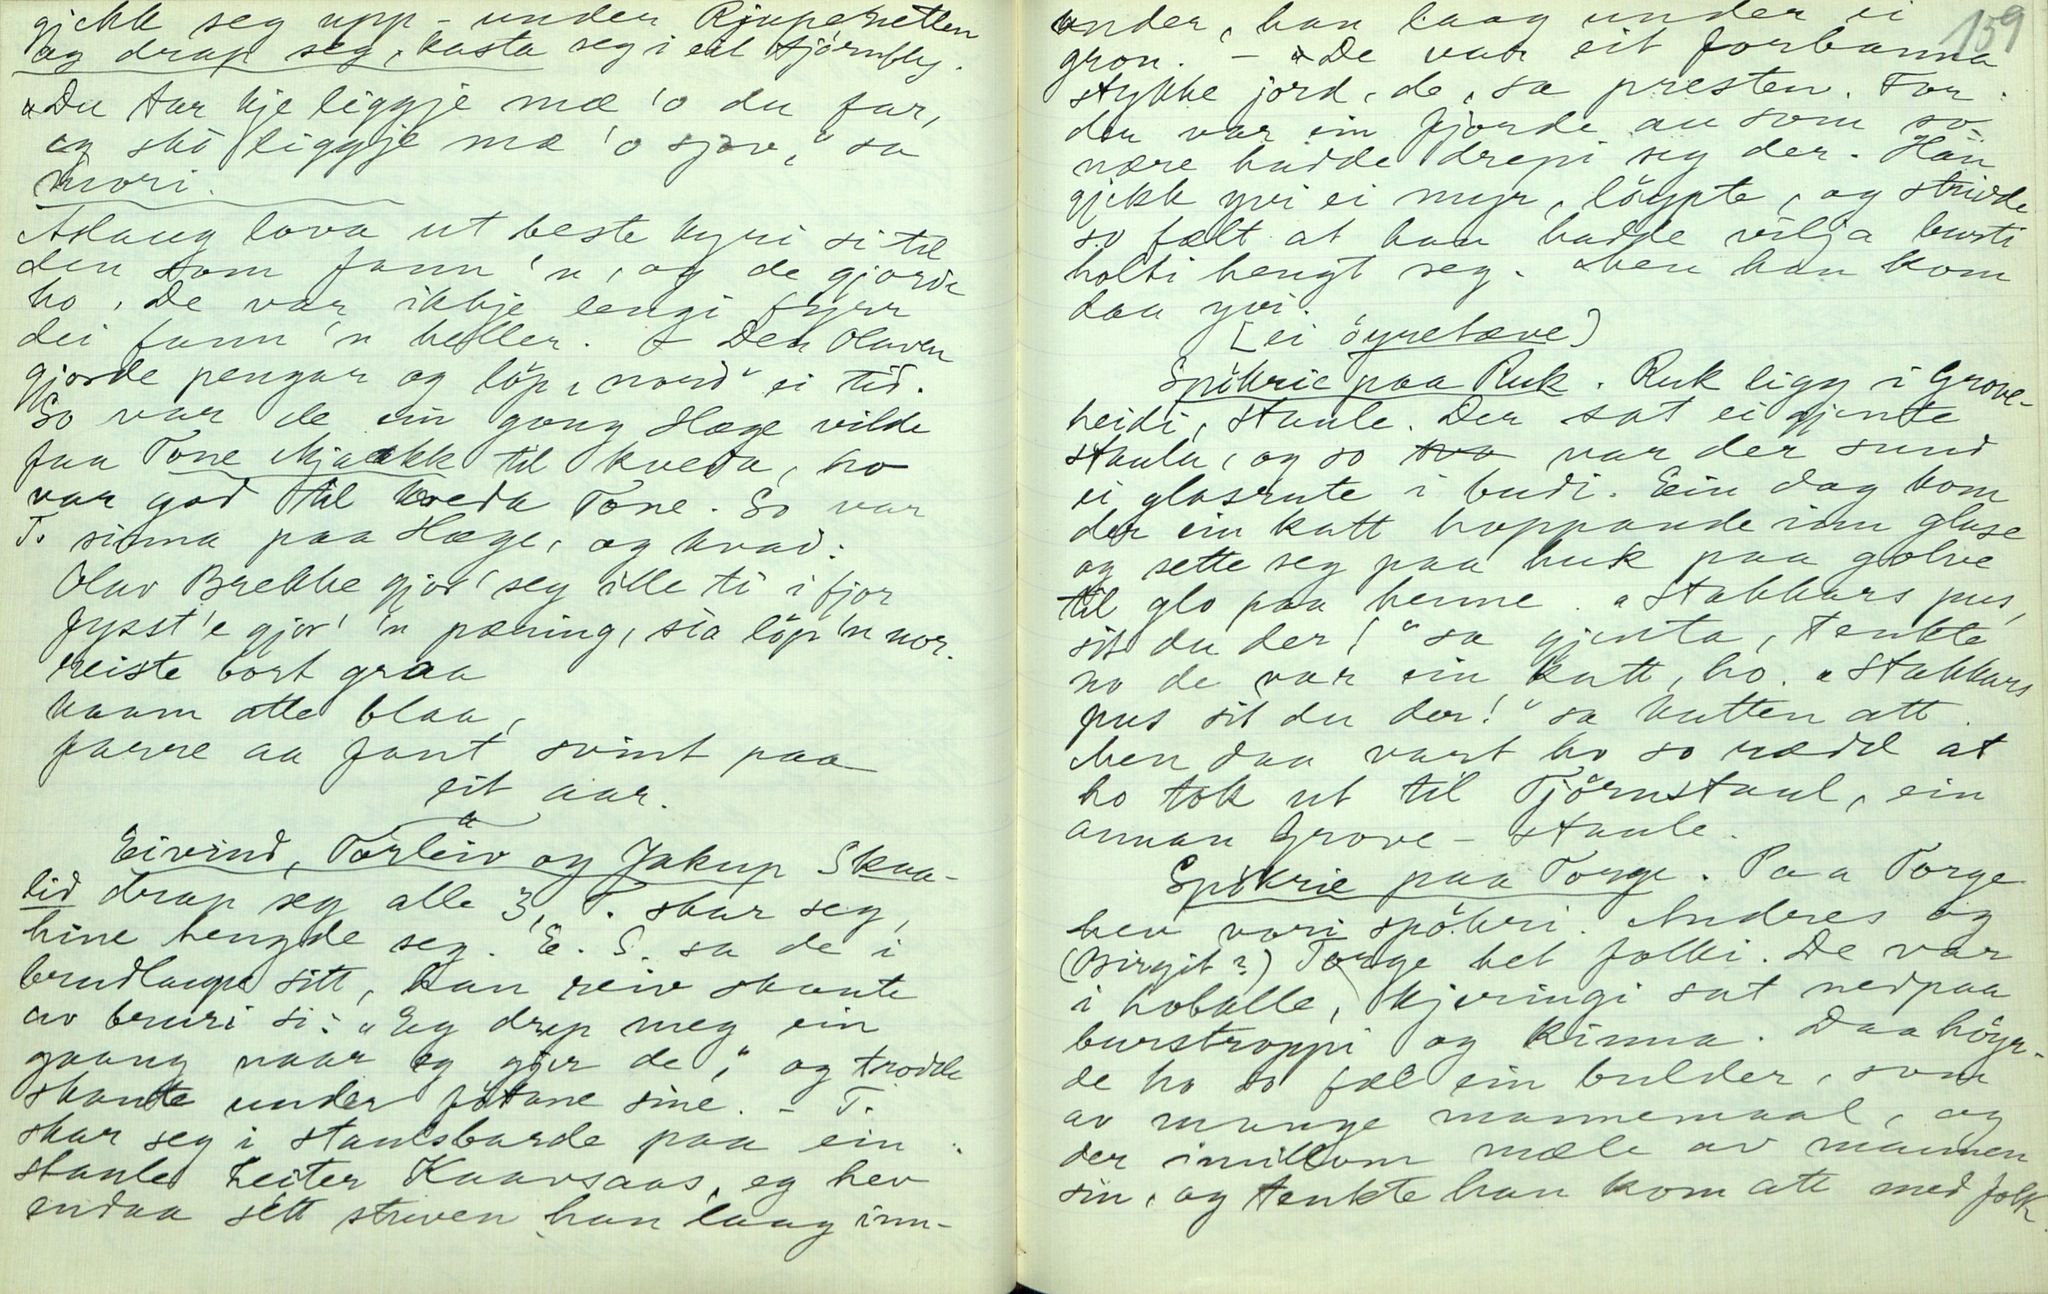 gjekk seg upp - under Rjupenetten
og drap seg, kasta seg i eit tjørnfly.
"Du tar kje liggje mæ 'o du far,
eg ska liggje mæ 'o sjøv," sa
mori.
Aslaug lova ut beste kyri si til
den som fann 'n, og de gjorde
ho. De var ikkje lengi fyrr
dei fann 'n heller. Den Olaven
gjorde pengar og löp "nord" ei tid.
So var de ein gong Hæge vilde
faa Tone Mjaakk til kveda, ho
var god til kveda Tone. So var
T. sinna paa Hæge, og kvad:
Olav Brekke gjor' seg ille ti i fjor
fysst 'e gjor' 'n pæning, sia löp 'n nor.
reiste bort graa
kaam atte blaa,
farre aa fant svint paa
eit aar.
Eivind, Torleiv og Jakup Skaa-
lid drap seg alle 3, T. skar seg,
hine hengde seg. E. S. sa de i
brudlaupe sitt, han reiv skaute
av bruri si: "Eg drep meg ein
gaang naar eg gjer de," og trødde
skaute under føtane sine. - T.
skar seg i staulsbarde paa ein
staule heiter Kaavsaas, eg hev
endaa sett steinen han laag inn-
159
under, han laag under ei
gron. - "De var eit forbanna
stykke jord, de, sa presten. For
der var ein fjorde au som so
nære hadde drepi seg der. Han
gjekk yvi ei myr, löypte, og stridde
so fælt at han hadde vilja burti
holti hengt seg. Men han kom
daa yvi.
[ei öyretæve]
Spökrie paa Ruk. Ruk ligg i Grove-
heidi, staule. Der sat ei gjente
staula, og so var der sund
ei glasrute i budi. Ein dag kom
der ein katt hoppande inn glase
og sette seg paa huk paa golve
til glo paa henne. "Stakkars pus,
sit du der!" sa gjenta, tenkte
no de var ein katt, ho. "Stakkars
pus sit du der!" sa katten att.
Men daa vart ho so rædd at
ho tok ut til Tjörnstaul, ein
annan Grove-staule.
Spökrie paa Torge. Paa Torge
hev vori spökri. Anderes og
(Birgit?) Torge het folki. De var
i hoballe, kjeringi sat nedpaa
burstroppi og kinna. Daa höyr-
de ho so fæl ein bulder, som
av mange mannemaal, og
der imillom mæle av mannen
sin, og tenkte han kom att med folk.